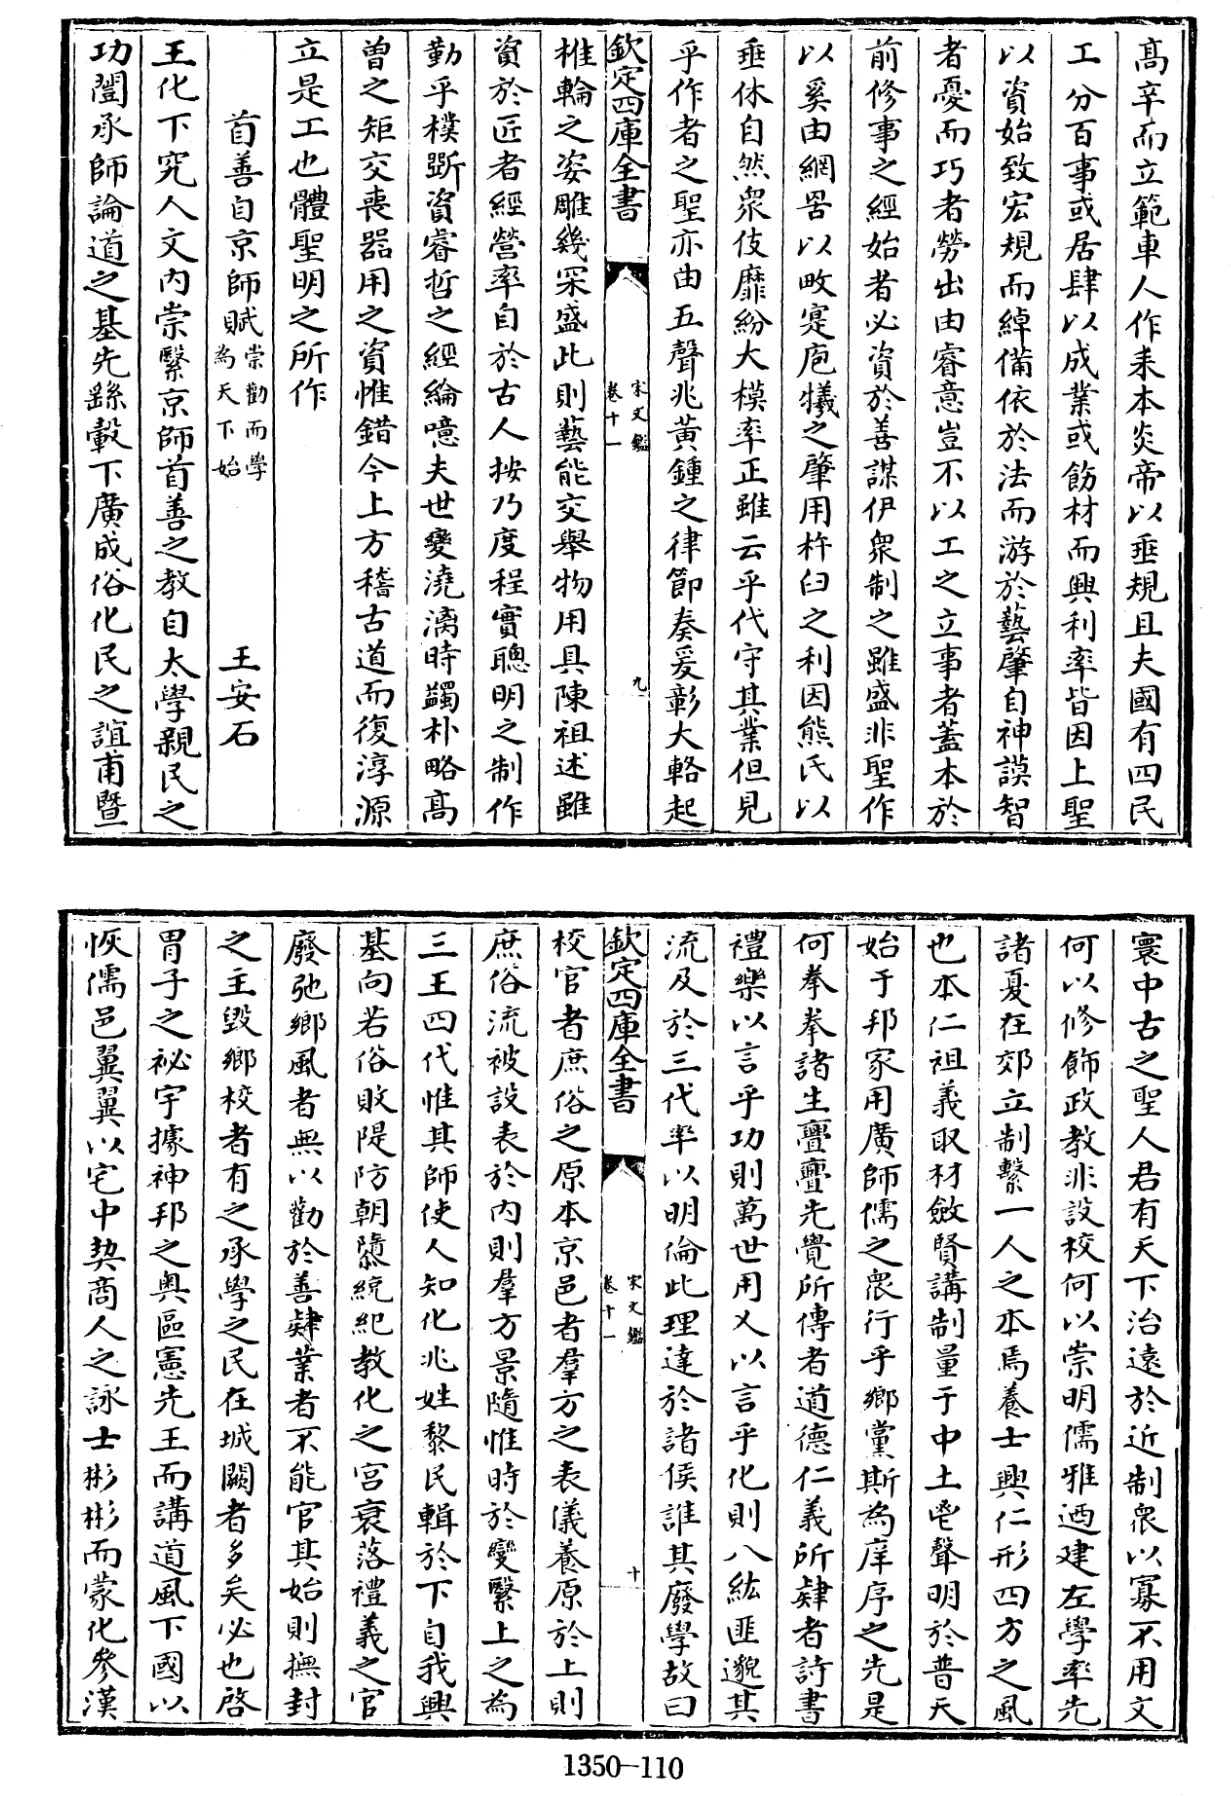 髙辛而立範車人作耒本炎帝以垂規且夫國有四民
工分百事或居肆以成業或飭材而興利率皆因上聖
以資始致宏規而綽備依於法而游於藝肇自神謨智
者憂而巧者勞出由睿意豈不以工之立事者蓋本於
前修事之經始者必資於善謀伊衆制之雖盛非聖作
以奚由網罟以畋寔庖犧之肇用杵臼之利因熊氏以
垂休自然衆伎靡紛大模率正雖云乎代守其業但見
乎作者之聖亦由五聲兆黃鍾之律節奏爰彰大輅起
欽定四庫全書
宋文鑑
卷十一
九
椎輪之姿雕幾罙盛此則藝能交舉物用具陳祖述雖
資於匠者經營率自於古人按乃度程實聰明之制作
勤乎樸斲資睿哲之經綸噫夫世變澆漓時蠲朴略髙
曾之矩交喪器用之資惟錯今上方稽古道而復淳源
立是工也體聖明之所作
首善自京師賦崇勸而學為天下始
王安石
王化下究人文內崇繫京師首善之教自太學親民之
功闓承師論道之基先繇轂下廣成俗化民之誼甫暨
寰中古之聖人君有天下治遠於近制衆以寡不用文
何以修飾政教非設校何以崇明儒雅迺建左學率先
諸夏在郊立制繫一人之本焉養士興仁形四方之風
也本仁祖義取材斂賢講制量于中土鬯聲明於普天
始于邦家用廣師儒之衆行乎鄉黨斯為庠序之先是
何拳拳諸生亹亹先覺所傳者道德仁義所肄者詩書
禮樂以言乎功則萬世用乂以言乎化則八紘匪邈其
流及於三代率以明倫此理達於諸侯誰其廢學故曰
欽定四庫全書
宋文鑑
卷十一
十
校官者庶俗之原本京邑者羣方之表儀養原於上則
庶俗流被設表於內則羣方景隨惟時於變繫上之為
三王四代惟其師使人知化兆姓黎民輯於下自我興
基向若俗敗隄防朝隳綂紀教化之宮衰落禮義之官
廢弛鄉風者無以勸於善肄業者不能官其始則撫封
之主毀鄉校者有之承學之民在城闕者多矣必也啓
胄子之祕宇據神邦之奥區憲先王而講道風下國以
恢儒邑翼翼以宅中契商人之詠士彬彬而蒙化參漢
1350—110